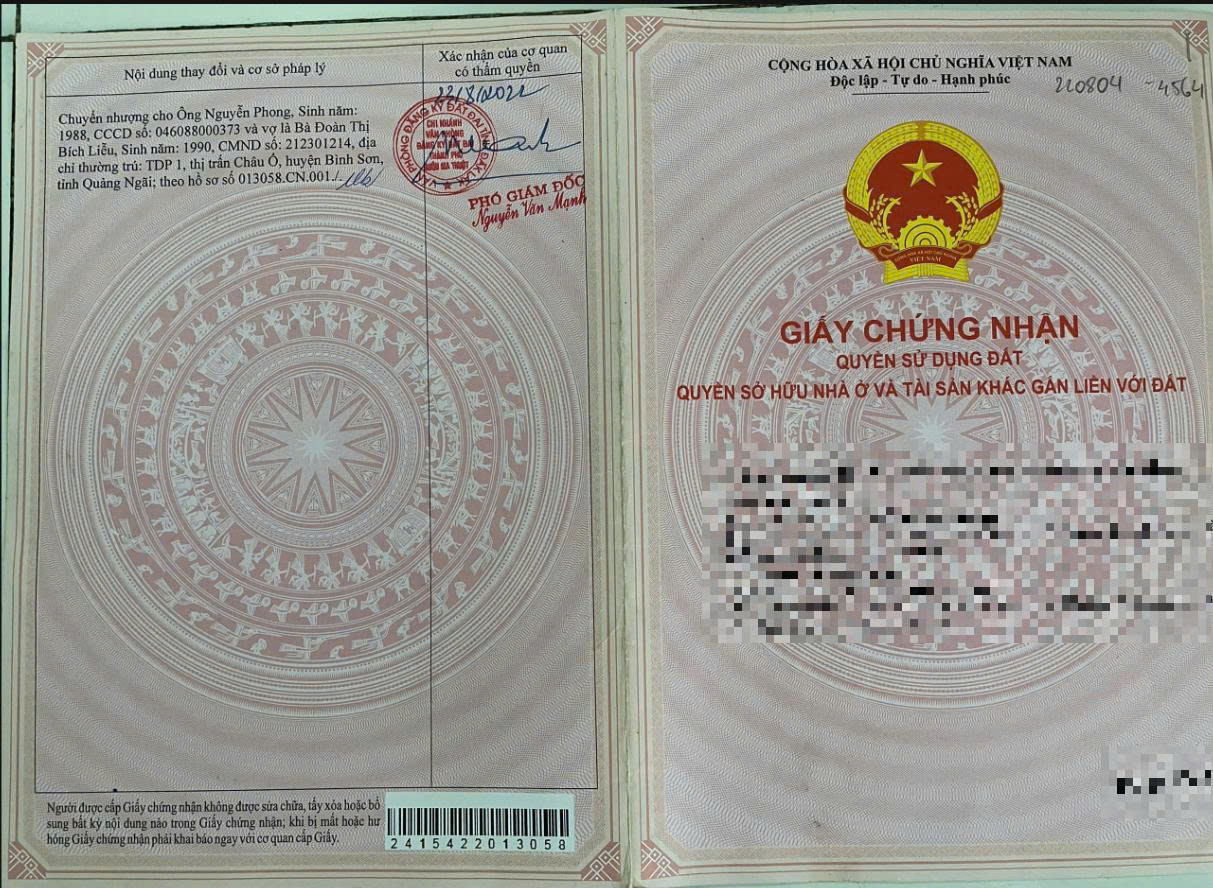 Nội dung thay đổi và cơ sở pháp lý
Xác nhận của cơ quan
có thẩm quyền
Chuyển nhượng cho Ông Nguyễn Phong, Sinh năm:
1988, CCCD số: 046088000373 và vợ là Bà Đoàn Thị
Bích Liễu, Sinh năm: 1990, CMND số: 212301214, địa
chỉ thường trú: TDP 1, thị trấn Châu Ổ, huyện Bình Sơn,
tỉnh Quảng Ngãi; theo hồ sơ số 013058.CN.001./.
/8/2022
VĂN PHÒNG ĐĂNG KÝ ĐẤT ĐAI TỈNH ĐẮK LẮK
CHI NHÁNH
VĂN PHÒNG
ĐĂNG KÝ ĐẤT ĐAI
THÀNH PHỐ
BUÔN MA THUỘT
PHÓ GIÁM ĐỐC
Nguyễn Văn Mạnh
Người được cấp Giấy chứng nhận không được sửa chữa, tẩy xóa hoặc bổ
sung bất kỳ nội dung nào trong Giấy chứng nhận; khi bị mất hoặc hư
hỏng Giấy chứng nhận phải khai báo ngay với cơ quan cấp Giấy.
2415422013058
CỘNG HÒA XÃ HỘI CHỦ NGHĨA VIỆT NAM
Độc lập - Tự do - Hạnh phúc
220804 - 4564
CỘNG HÒA XÃ HỘI CHỦ NGHĨA
VIỆT NAM
GIẤY CHỨNG NHẬN
QUYỀN SỬ DỤNG ĐẤT
QUYỀN SỞ HỮU NHÀ Ở VÀ TÀI SẢN KHÁC GẮN LIỀN VỚI ĐẤT